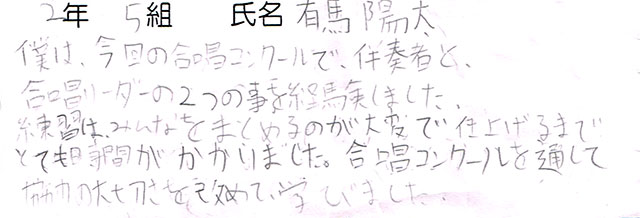 2年 5組 氏名 有馬陽太
僕は、今回の合唱コンクールで、伴奏者と、
合唱リーダーの2つの事を経験しました。
練習は、みんなをまとめるのが大変で仕上げるまで
とても時間がかかりました。合唱コンクールを通して
協力の大切さを改めて、学びました。